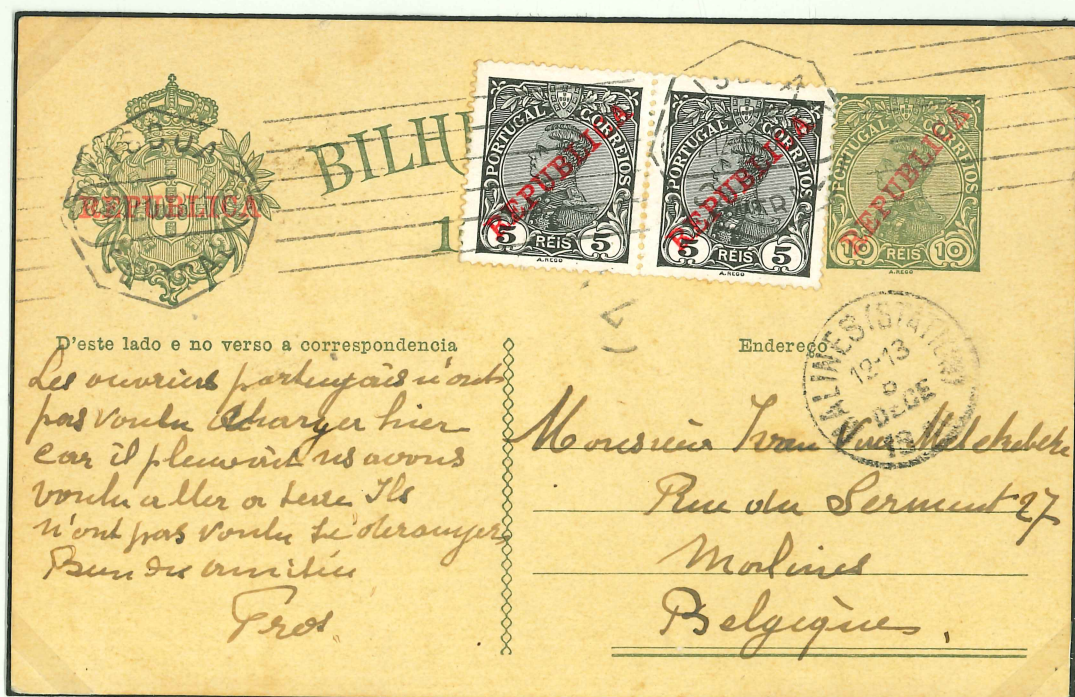 LISBOA
CENTRAL
REPUBLICA
BILH
1
PORTUGAL CORREIOS
REPUBLICA
5 REIS 5
A. REGO
PORTUGAL CORREIOS
REPUBLICA
5 REIS 5
A. REGO
PORTUGAL CORREIOS
REPUBLICA
10 REIS 10
MALINES (STATION)
12-13
9
DECE
D'este lado e no verso a correspondencia
Endereço
Les ouvriers portugais n'ont
pas voulu charger hier
car il pleuvait ns avons
voulu aller a terre Ils
n'ont pas voulu se deranger
Bien des amitiés
Monsieur Ivan Van
Rue du Serment 27
Malines
Belgique.